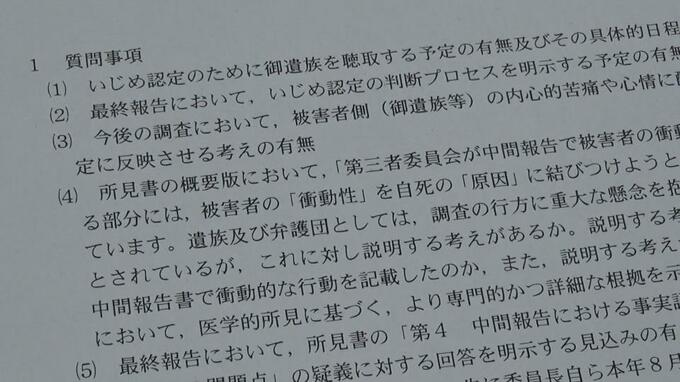 1 質問事項
(1) いじめ認定のために御遺族を聴取する予定の有無及びその具体的日程
(2) 最終報告において，いじめ認定の判断プロセスを明示する予定の有無
(3) 今後の調査において，被害者側（御遺族等）の内心的苦痛や心情に
定に反映させる考えの有無
(4) 所見書の概要版において，「第三者委員会が中間報告で被害者の衝動
る部分には，被害者の「衝動性」を自死の「原因」に結びつけようと
ています。遺族及び弁護団としては，調査の行方に重大な懸念を抱
とされているが，これに対し説明する考えがあるか。説明する考
中間報告書で衝動的な行動を記載したのか，また，説明する考え
において，医学的所見に基づく，より専門的かつ詳細な根拠を示
(5) 最終報告において，所見書の「第４ 中間報告における事実認
問題点」の疑義に対する回答を明示する見込みの有
に委員長自ら本年８月